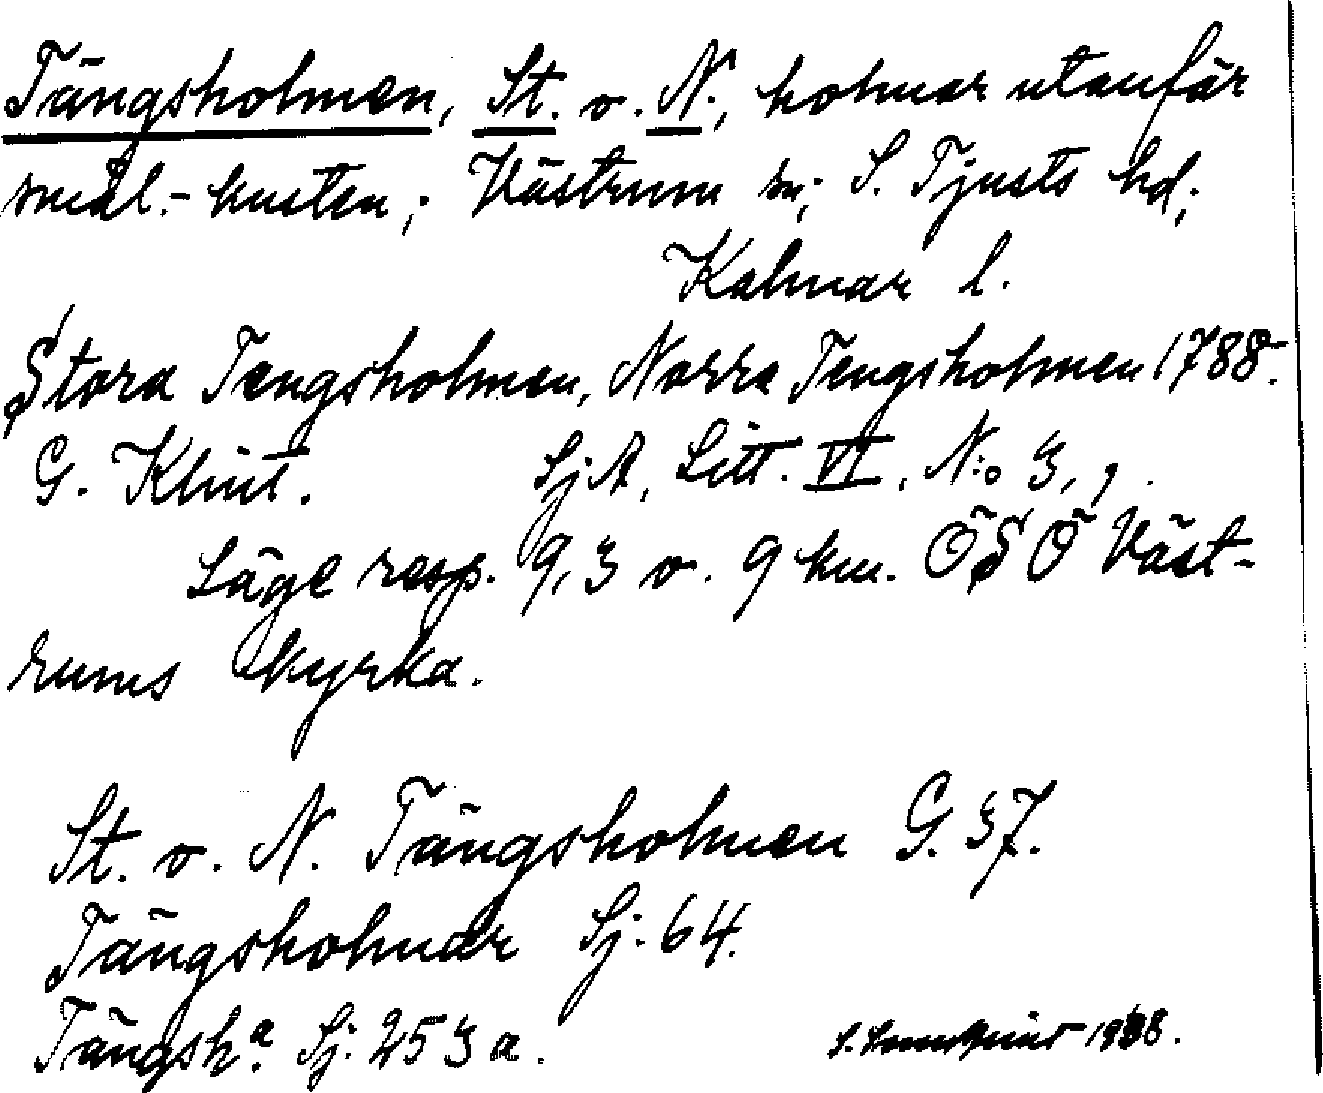 Tängsholmen, St. o. N., holmar utanför
smål.-kusten; Västrum sn; S. Tjusts hd;
Kalmar l.
Stora Tengsholmen, Norra Tengsholmen 1788.
G. Klint. SjA, Litt. VI, N:o 3, 9.
Läge resp. 9,3 o. 9 km. ÖSÖ Väst-
rums kyrka.
St. o. N. Tängsholmen G. 37.
Tängsholmar Sj. 64.
Tängsh.a Sj. 253 a.
S.